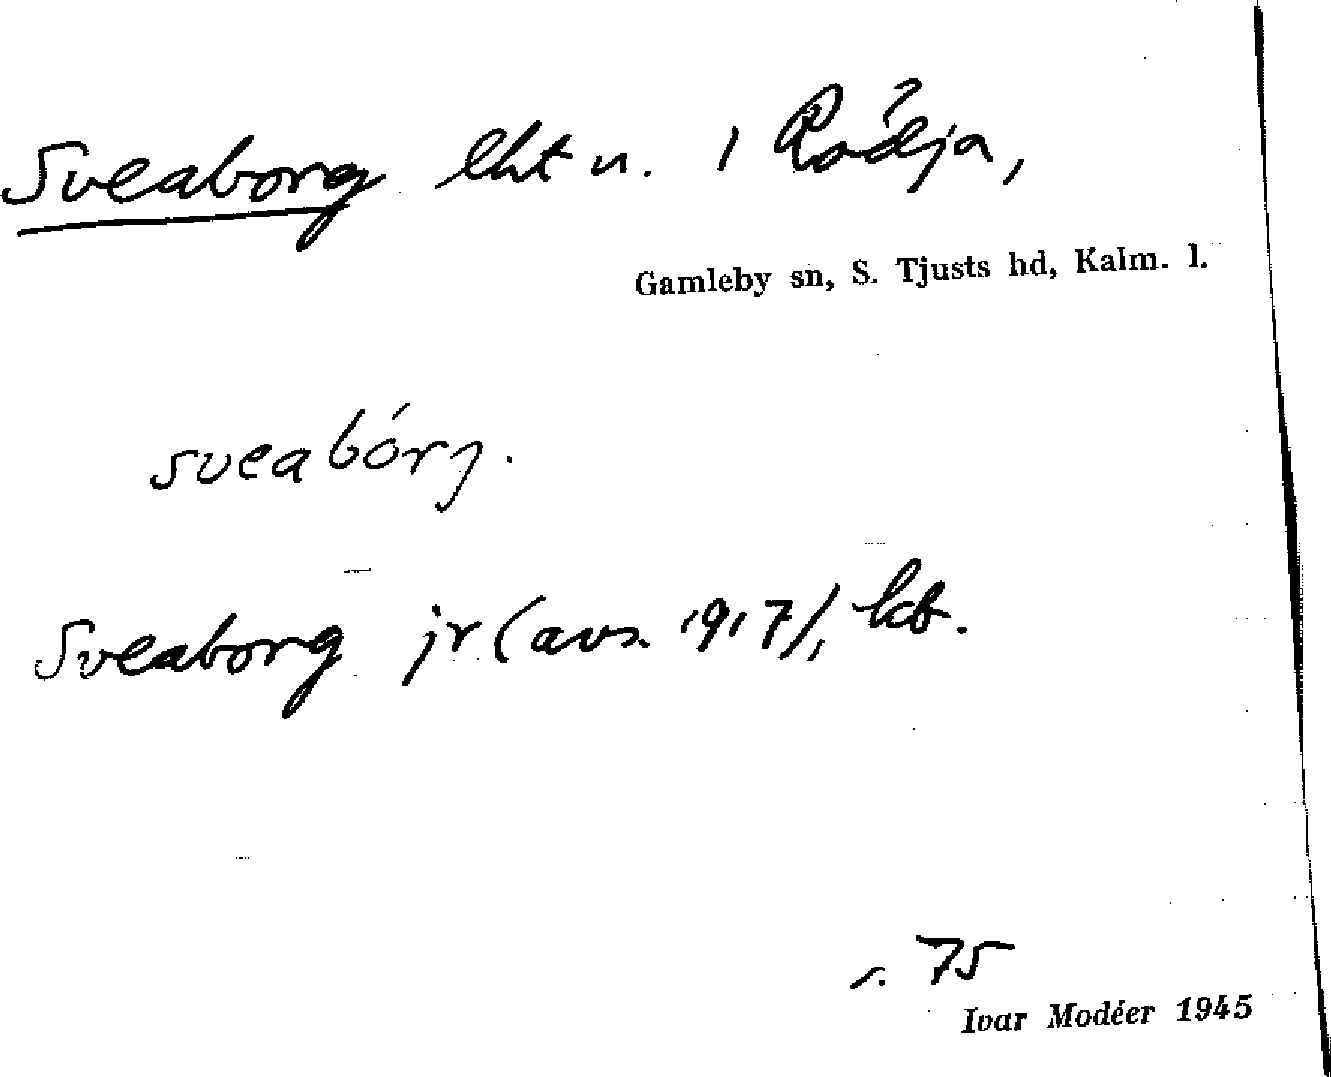 Sveaborg lht n. i Rådja,
Gamleby sn, S. Tjusts hd, Kalm. l.
sveabórj.
Sveaborg jr (avs. 1917),
s. 75
Ivar Modéer 1945